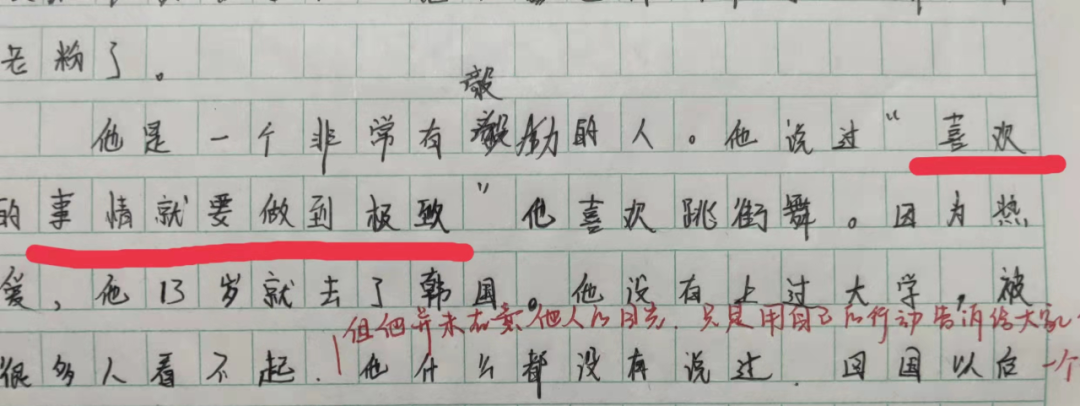 老粉了。
毅
他是一个非常有毅力的人。他说过“喜欢
的事情就要做到极致”他喜欢跳街舞。因为热
爱，他13岁就去了韩国。他没有上过大学，被
但他并未在意他人的目光，只是用自己的行动告诉给大家
很多人看不起.他什么都没有说过.回国以后一个